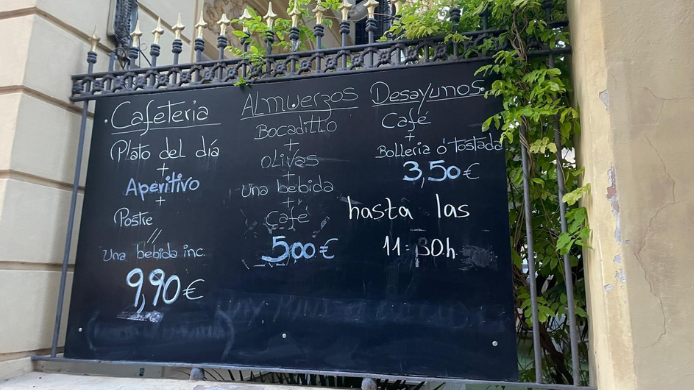 Cafeteria
Plato del día
+
Aperitivo
+
Postre
Una bebida inc.
9,90€
Almuerzos
Bocadillo
+
Olivas
+
una bebida
+
Café
5,00€
Desayunos
Café
+
Bolleria ó tostada
3,50€
hasta las
11:30h.